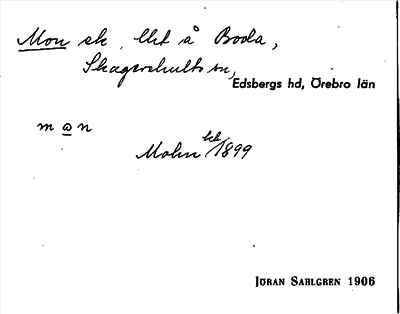 Mon sk, lht å Boda,
Skagershults sn,
Edsbergs hd, Örebro län
m o n
Molin kk 1899
JÖRAN SAHLGREN 1906